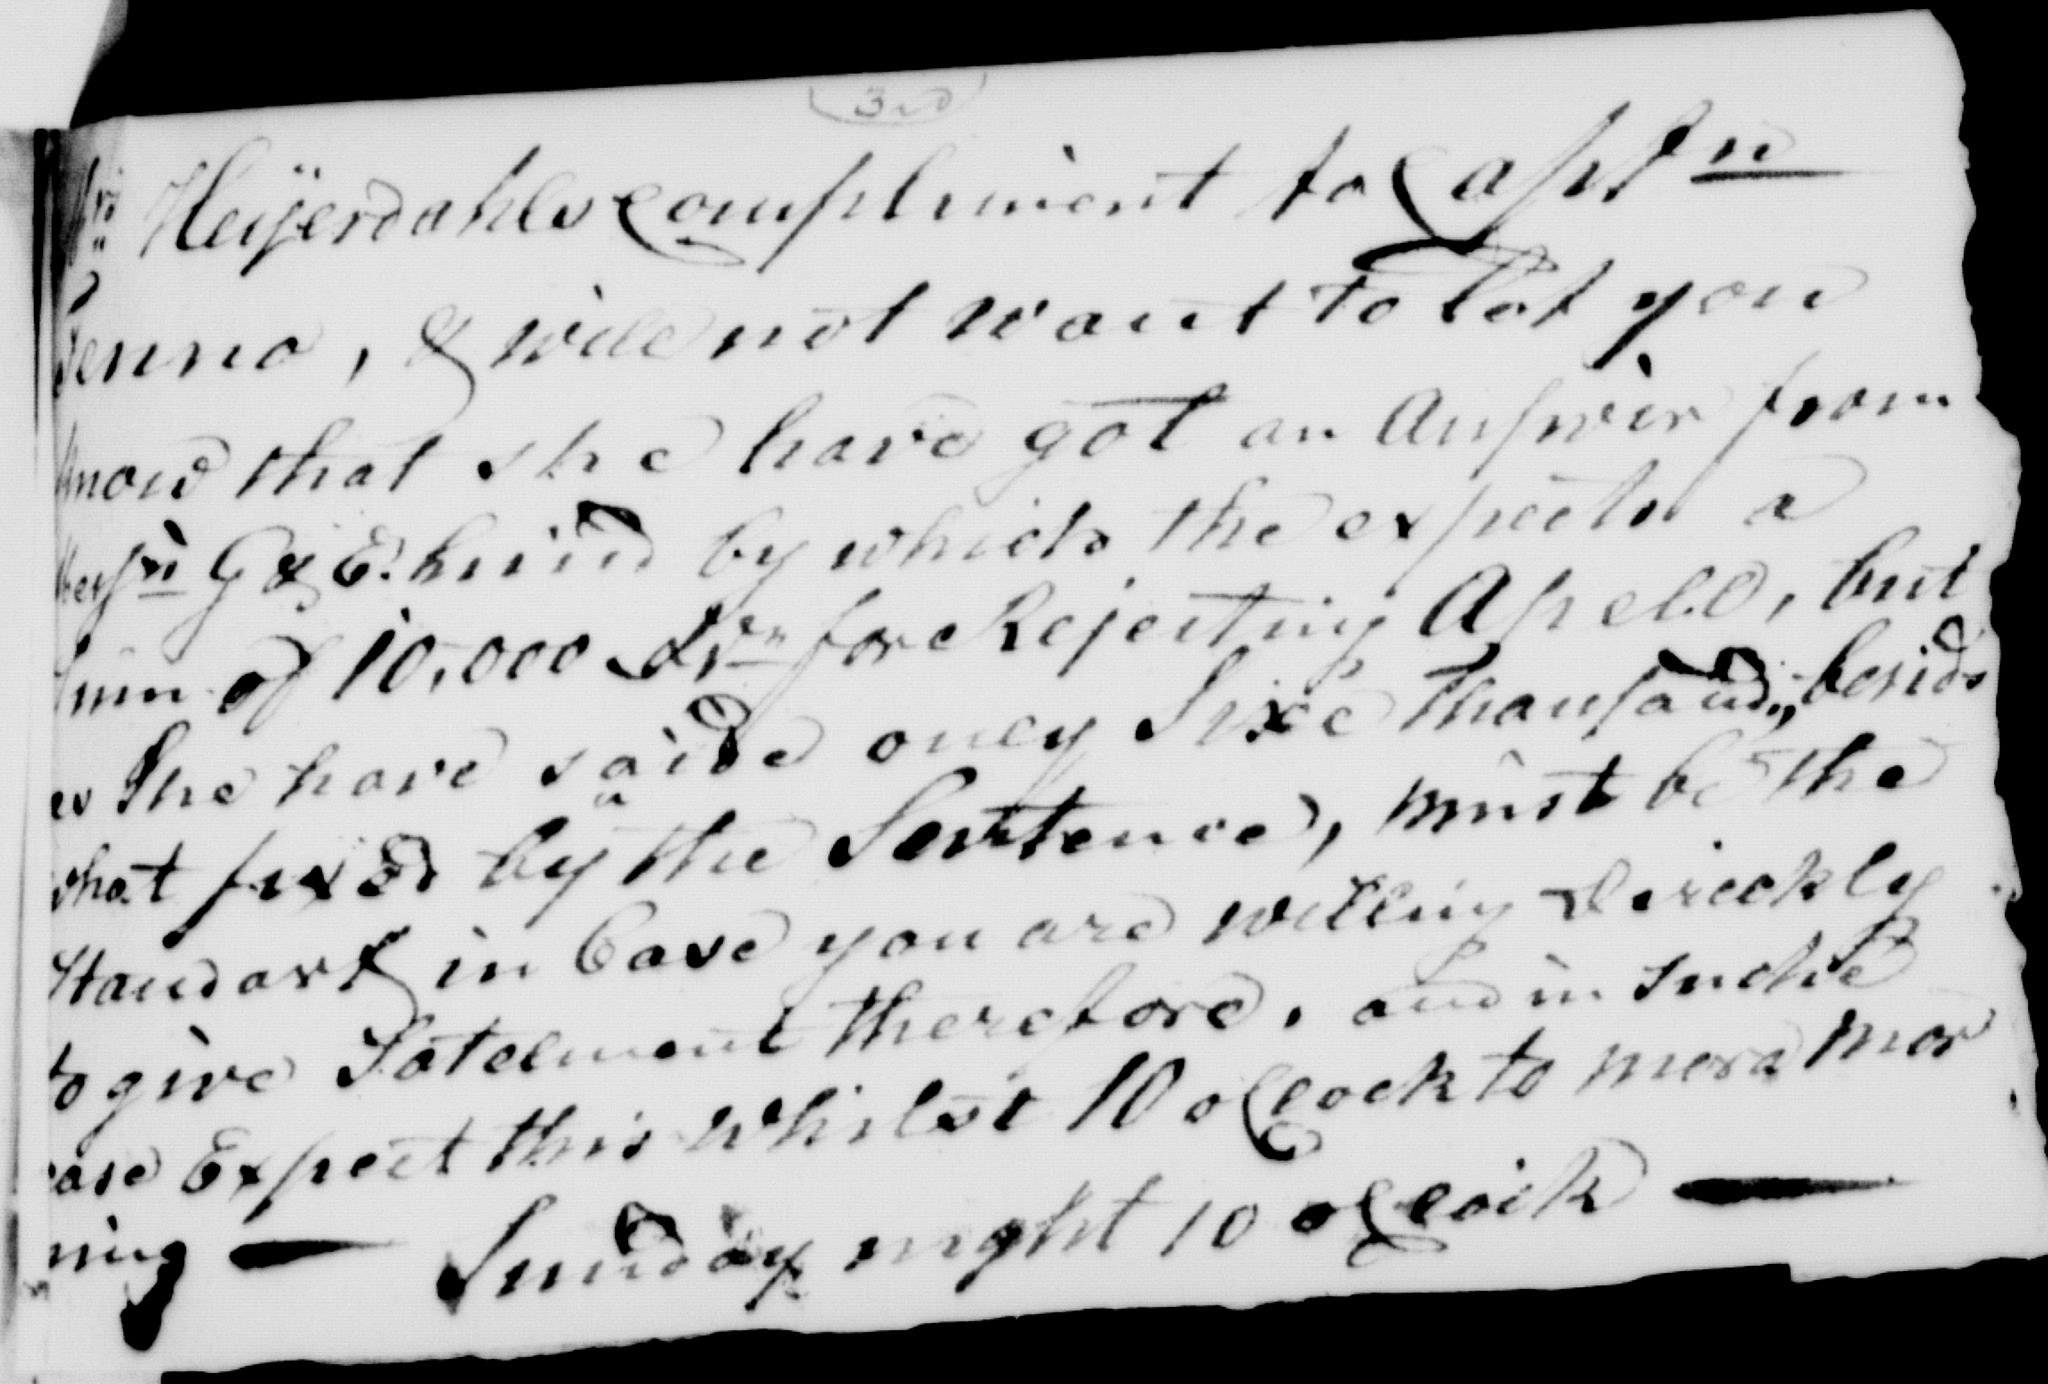 3rd
Mrs Heÿerdahls compliment to Captn
Jenno, & will not want to lot you
know that she have got an Answer from
by which she expects a
Sum of 10,000 for Rejecting Apeld, but
es She have saide only Sixe Thousand,, besid
what fixed by the Sentence, must be the
Standart in Case you are willing Direckly
to give Satelment therefore, and in suche
case Expect this Whilst 10 oClock to mora mor
ning — Sunday night 10 oClock —